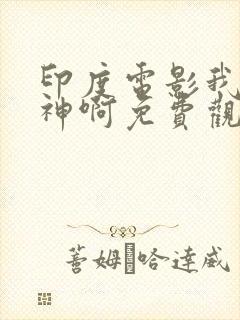 印度电影我的
神啊免費觀
蓍姆·哈達威